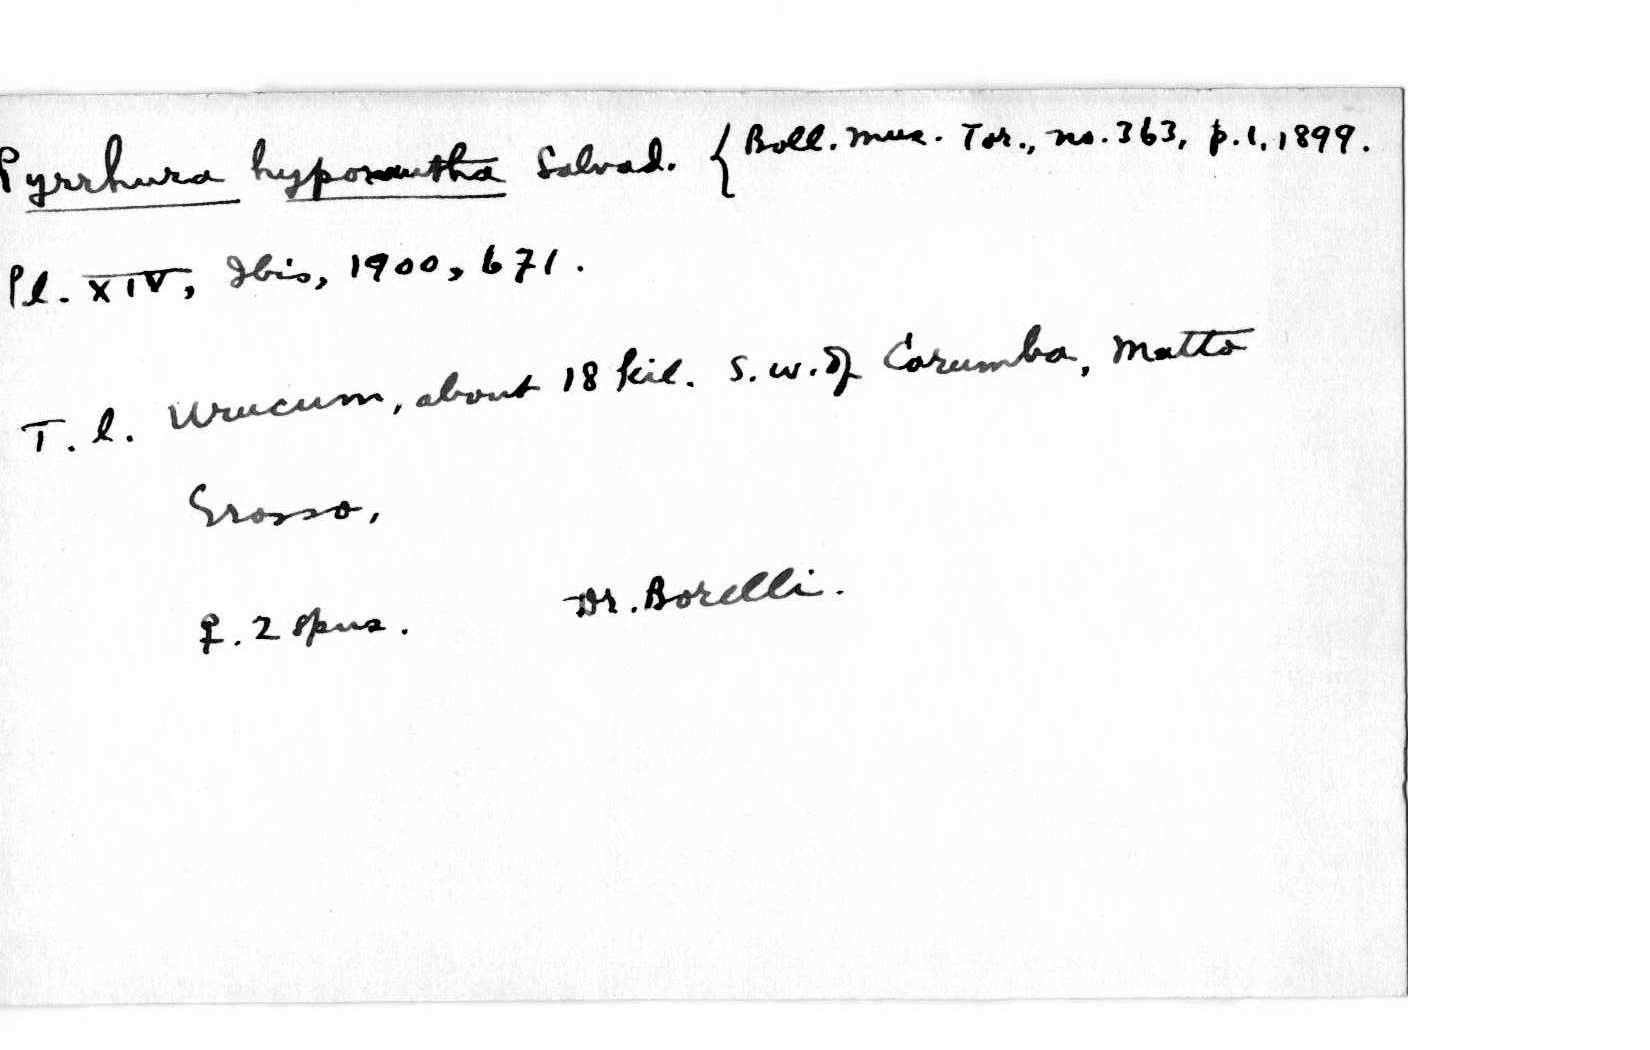 Pyrrhura hypoxantha Salvad. { Boll. Mus. Tor., no. 363, p. 1, 1899.
Pl. XIV, Ibis, 1900, 671.
T. l. Urucum, about 18 kil. S. W. of Corumba, Matto
Grosso,
♀. 2 spns. Dr. Borelli.